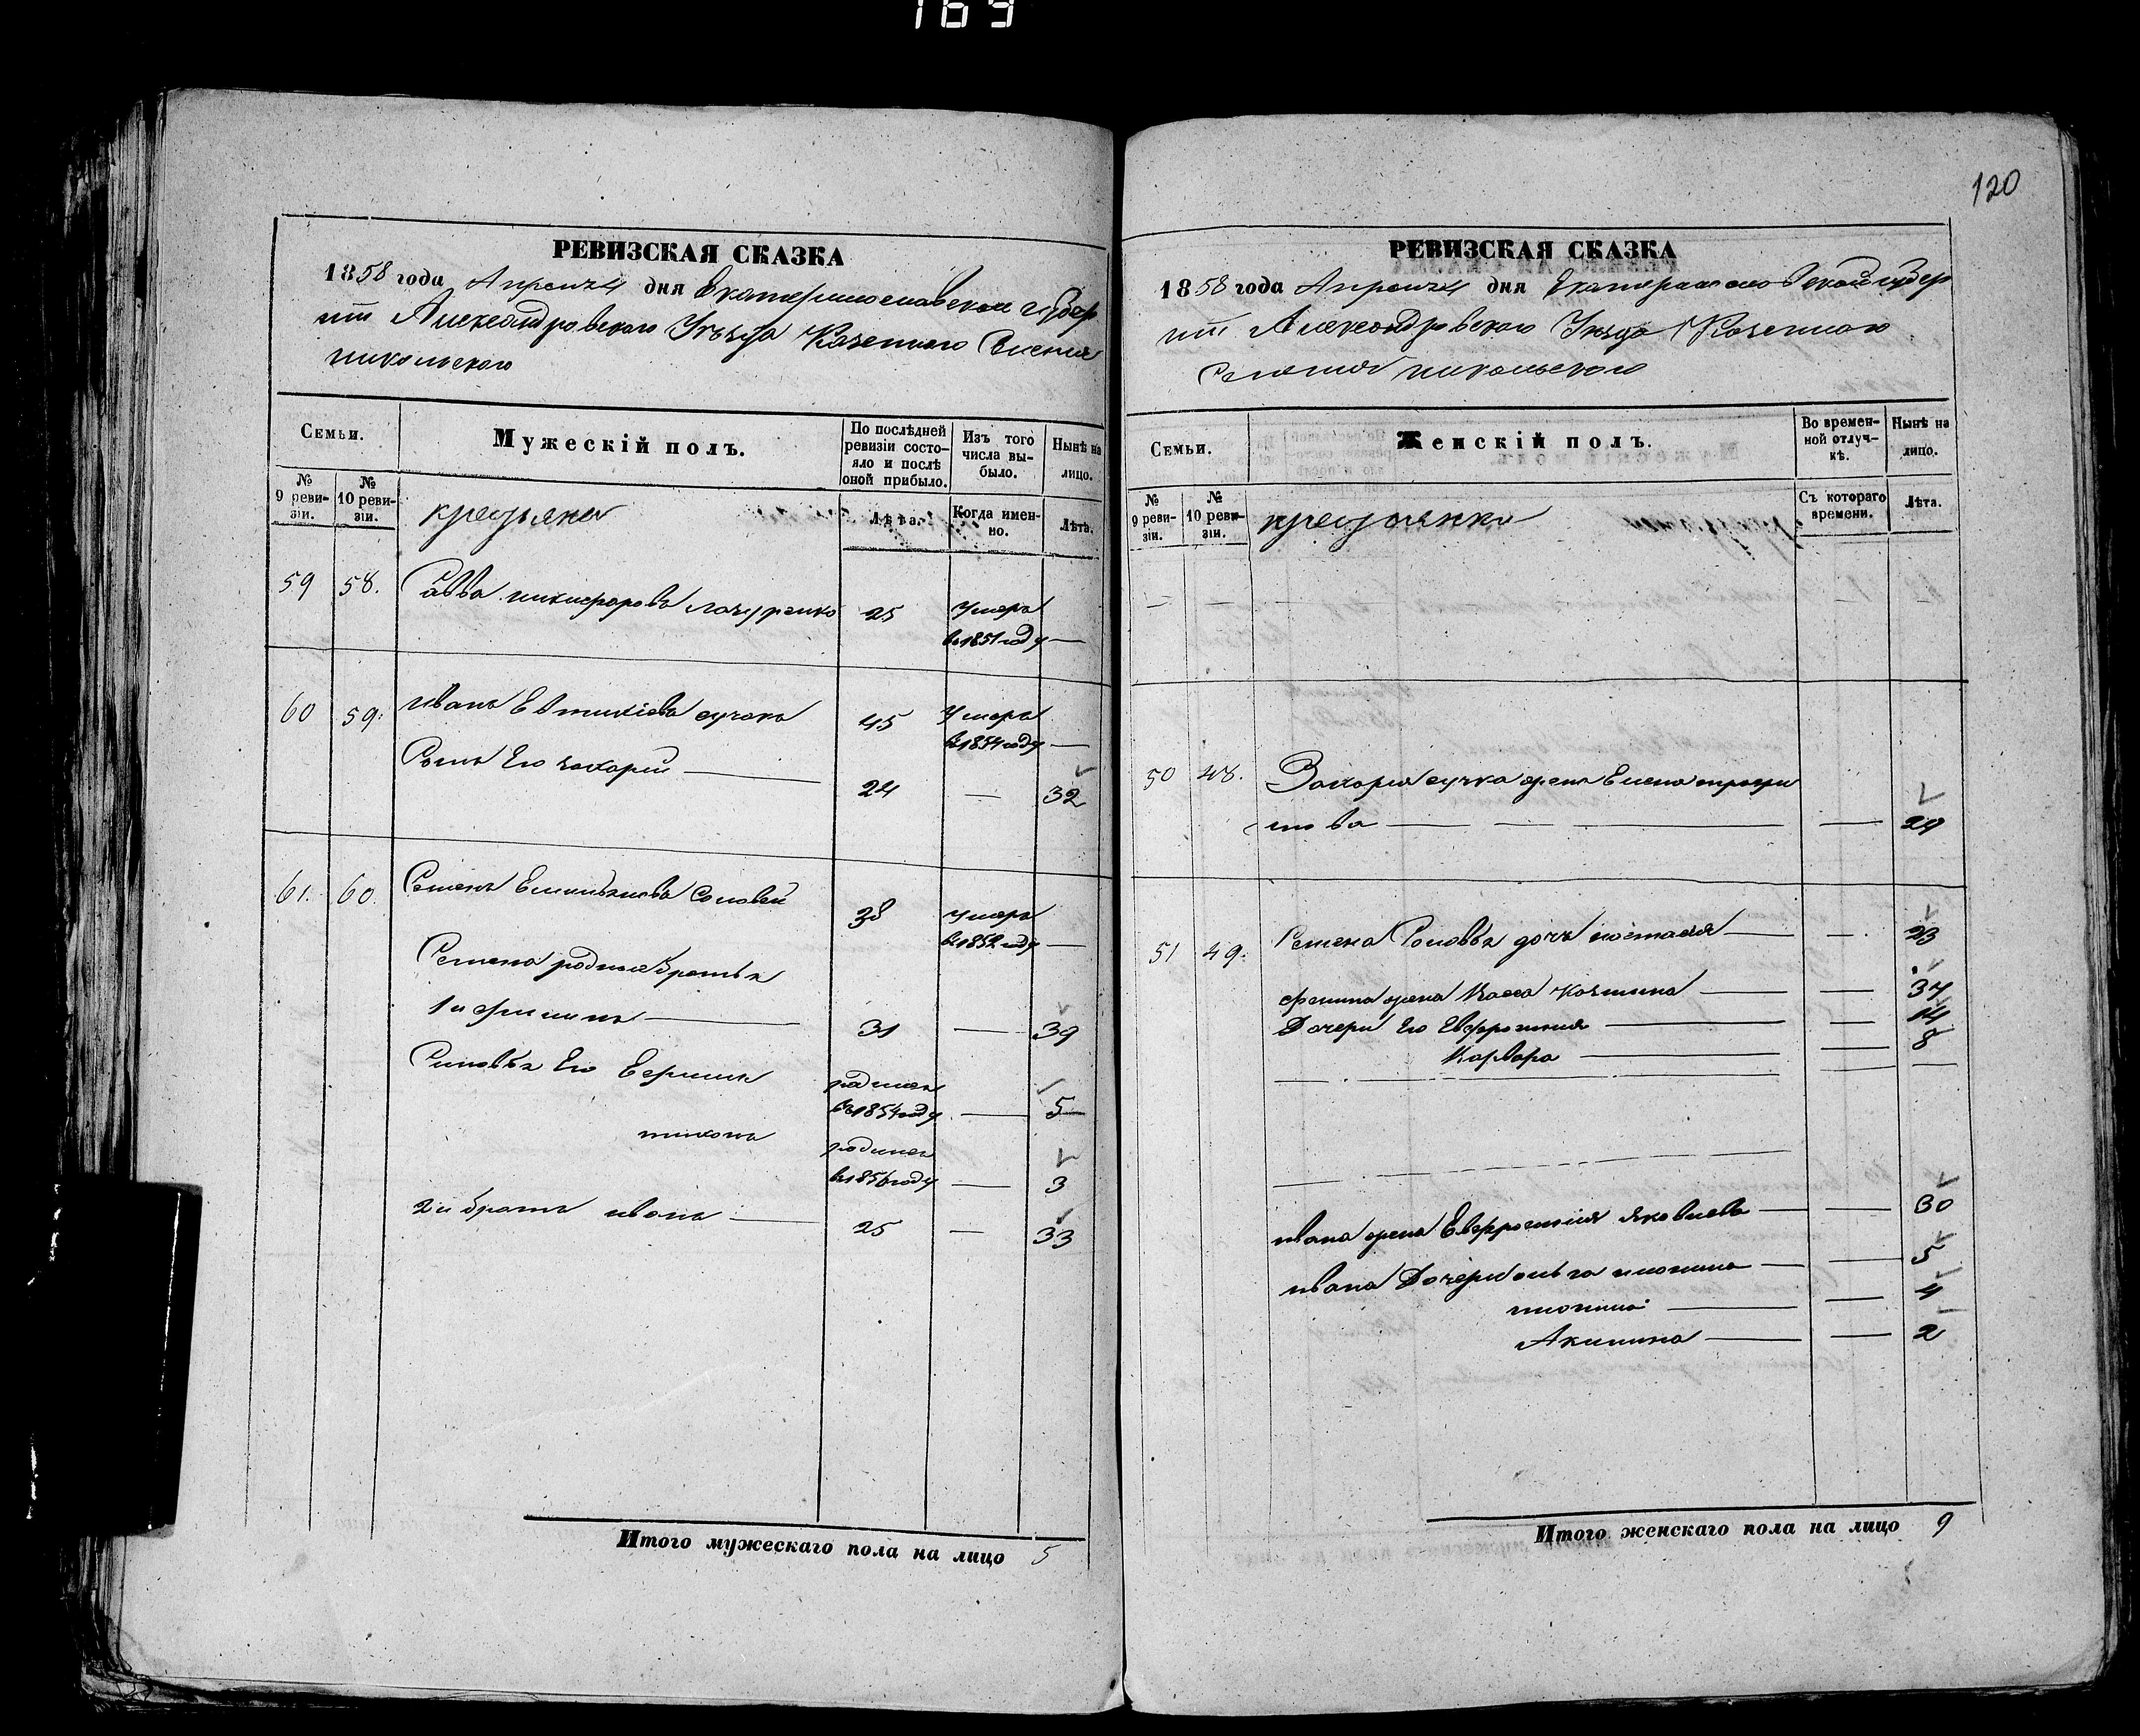 169
120
РЕВИЗСКАЯ СКАЗКА
1858 года Апреля 4 дня Екатеринославской губер
нiи Александровскаго Уѣзда Казеннаго Селенiя
никольскаго
Семьи.
Мужескiй полъ.
По послѣдней ревизiи состояло и послѣ оной прибыло.
Изъ того числа выбыло.
Нынѣ на лицо.
№ 9 ревизiи.
№ 10 ревизiи.
крестьяне
Лѣта.
Когда именно.
Лѣта.
59 58. Савва никифоровъ лазуренко 25 умеръ
въ 1851 году —
60 59. иванъ Евтихiевъ сучокъ 45 умеръ
въ 1854 году —
Сынъ Его захарiй — 24 — 32
61. 60. Семенъ Емельяновъ Соловей 38 умеръ
въ 1852 году —
Семена родные братья
1й ефимъ — 31 — 39
Сыновья Его родился
въ 1854 году — 5
тихонъ родился
въ 1856 году — 3
2й братъ иванъ — 25 — 33
Итого мужескаго пола на лицо 5
РЕВИЗСКАЯ СКАЗКА
1858 года Апреля 4 дня Екатеринославской губер
нiи Александровскаго Уезда Казеннаго
Селенiя никольскаго
Семьи.
Женскiй полъ.
Во временной отлучкѣ.
Нынѣ на лицо.
№ 9 ревизiи.
№ 10 ревизiи.
крестьянки
Съ котораго времени.
Лѣта.
— — — —
50 48. Захарiя сучка жена Елена трофи
мова — — — — 29
51 49. Семена Соловья дочь — — 23
жена — — 37
Дочери Его Евфросинiя — — 14
Варвара — — 8
ивана жена Евфросинiя яковлева — — 30
ивана Дочери — — 5
— — 4
Акилина — — 2
Итого женскаго пола на лицо 9